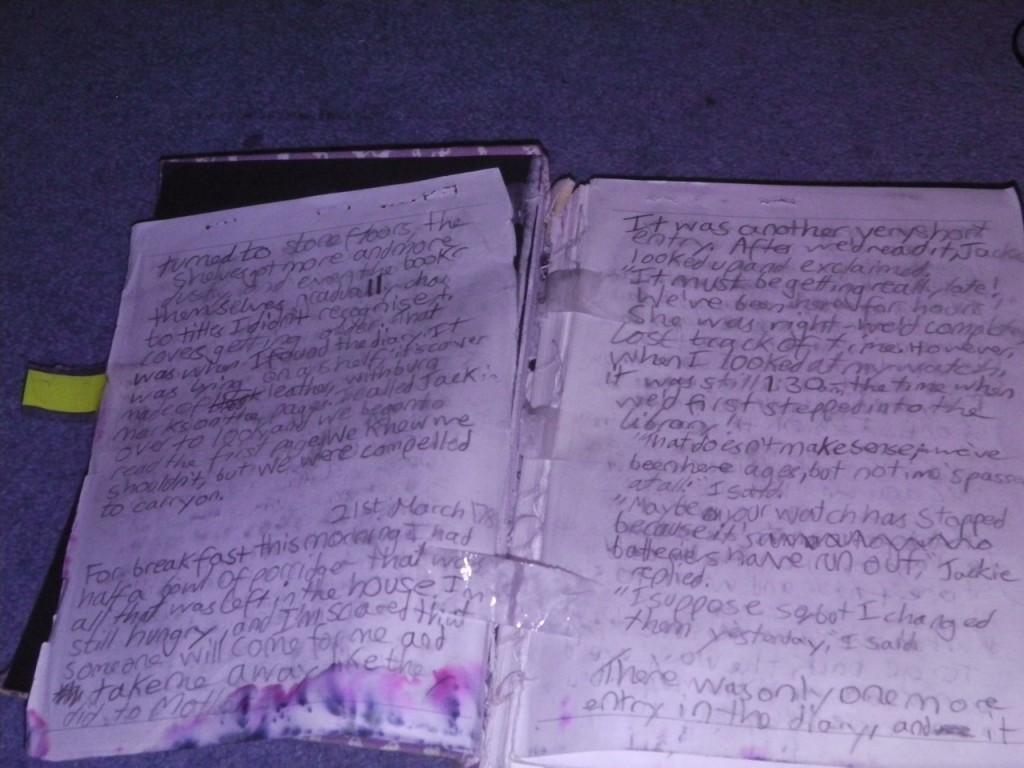 turned to stone floors, the
shelves got more and more
dusty and even the books
themselves gradually
to titles I didn't recognise,
covers getting older. That
was when I found the diary. It
was lying on a shelf, it's cover
made of leather, with burn
marks on the pages. I called Jackie
over to look, and we began to
read the first page. We knew we
shouldn't, but we were compelled
to carry on.
21st March
For breakfast this morning I had
half a bowl of porridge that was
all that was left in the house. I'm
still hungry, and I'm scared that
someone will come for me and
take me away like the
did to
It was another very short
entry. After we'd read it, Jackie
looked up and exclaimed,
"It must be getting really late!
We've been here for hours
She was right - we'd completely
lost track of time. However,
when I looked at my watch,
it was still 1:30 - the time when
we'd first stepped into the
library!
"That doesn't make sense, we've
been here ages, but no time's passed
at all" I said.
"Maybe your watch has stopped
because it's
batteries have run out," Jackie
replied.
"I suppose so, but I changed
them yesterday," I said.
There was only one more
entry in the diary, and it